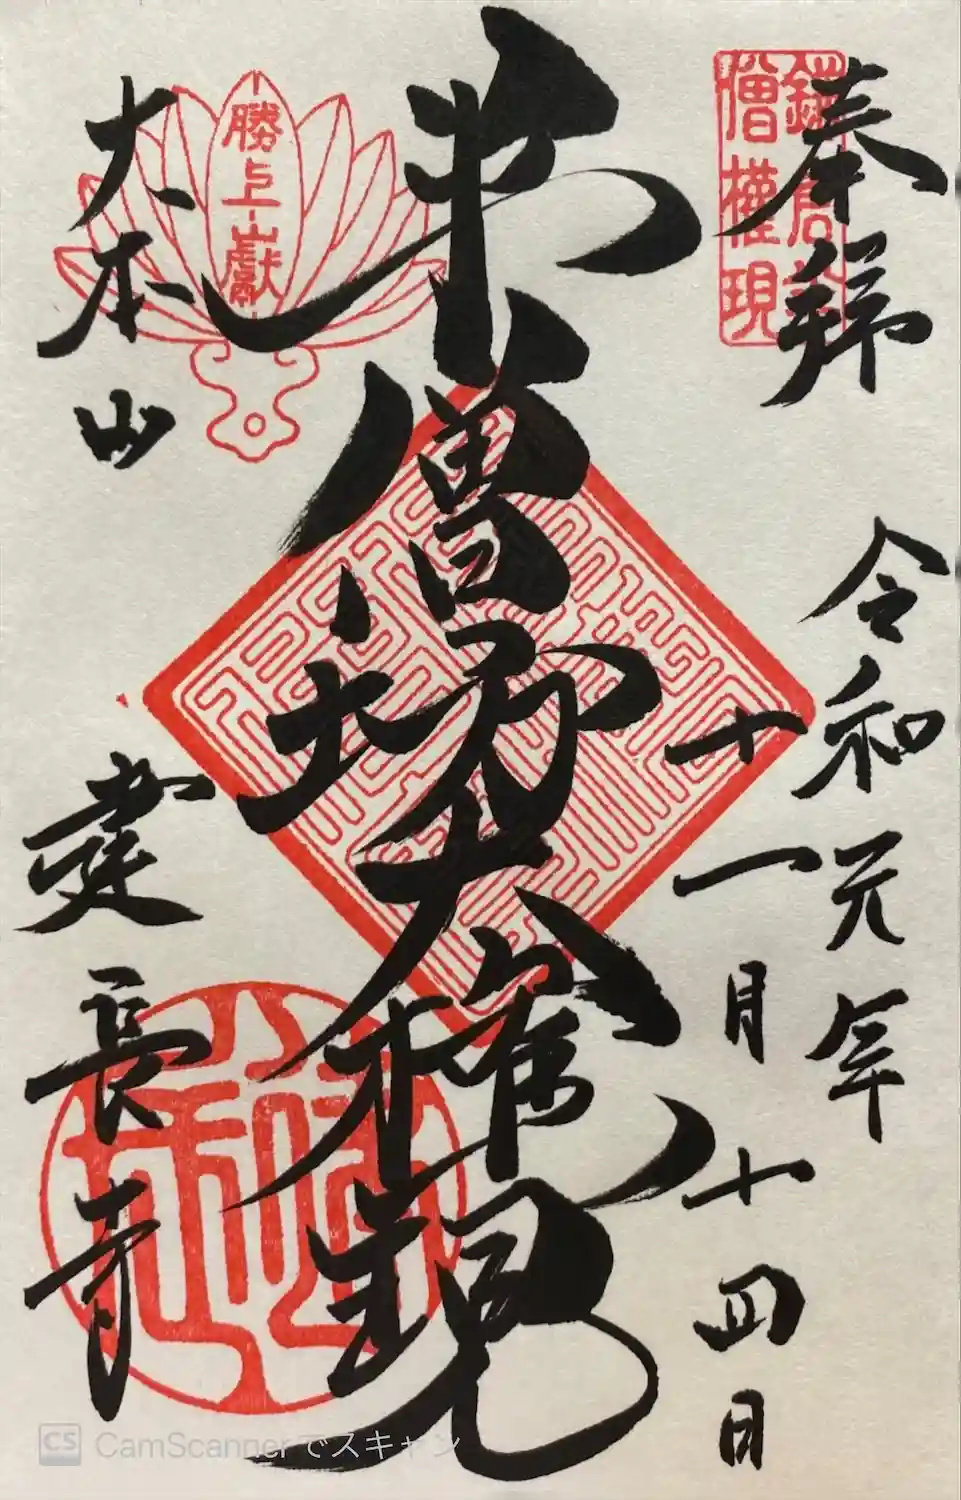 奉拝
鎌倉半
僧權現
令和元年
十一月十四日
半僧坊大権現
勝上嶽
大本山
建長寺
CS CamScanner でスキャン